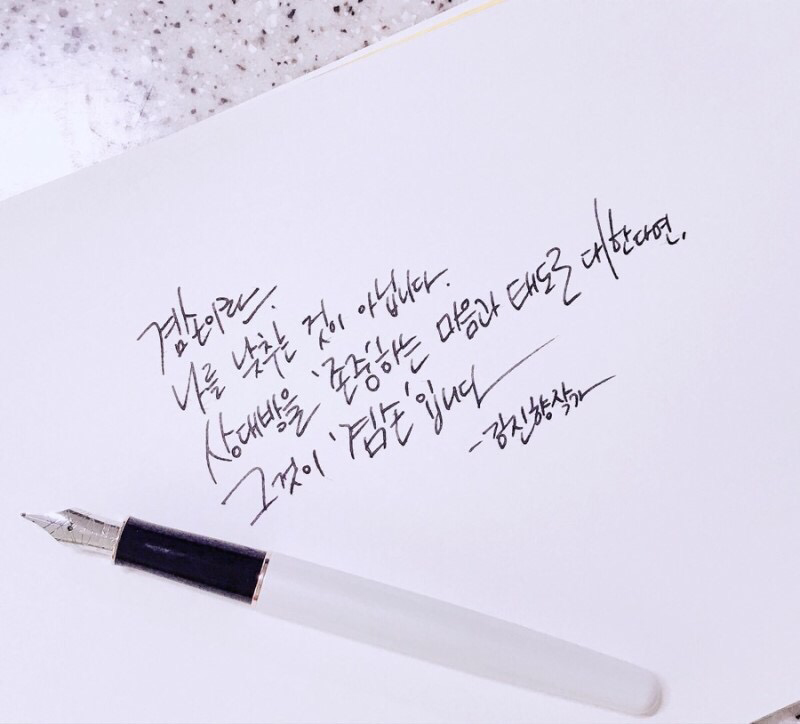 겸손이란,
나를 낮추는 것이 아닙니다.
상대방을 '존중'하는 마음과 태도로 대한다면,
그것이 '겸손'입니다
- 강진향 작가